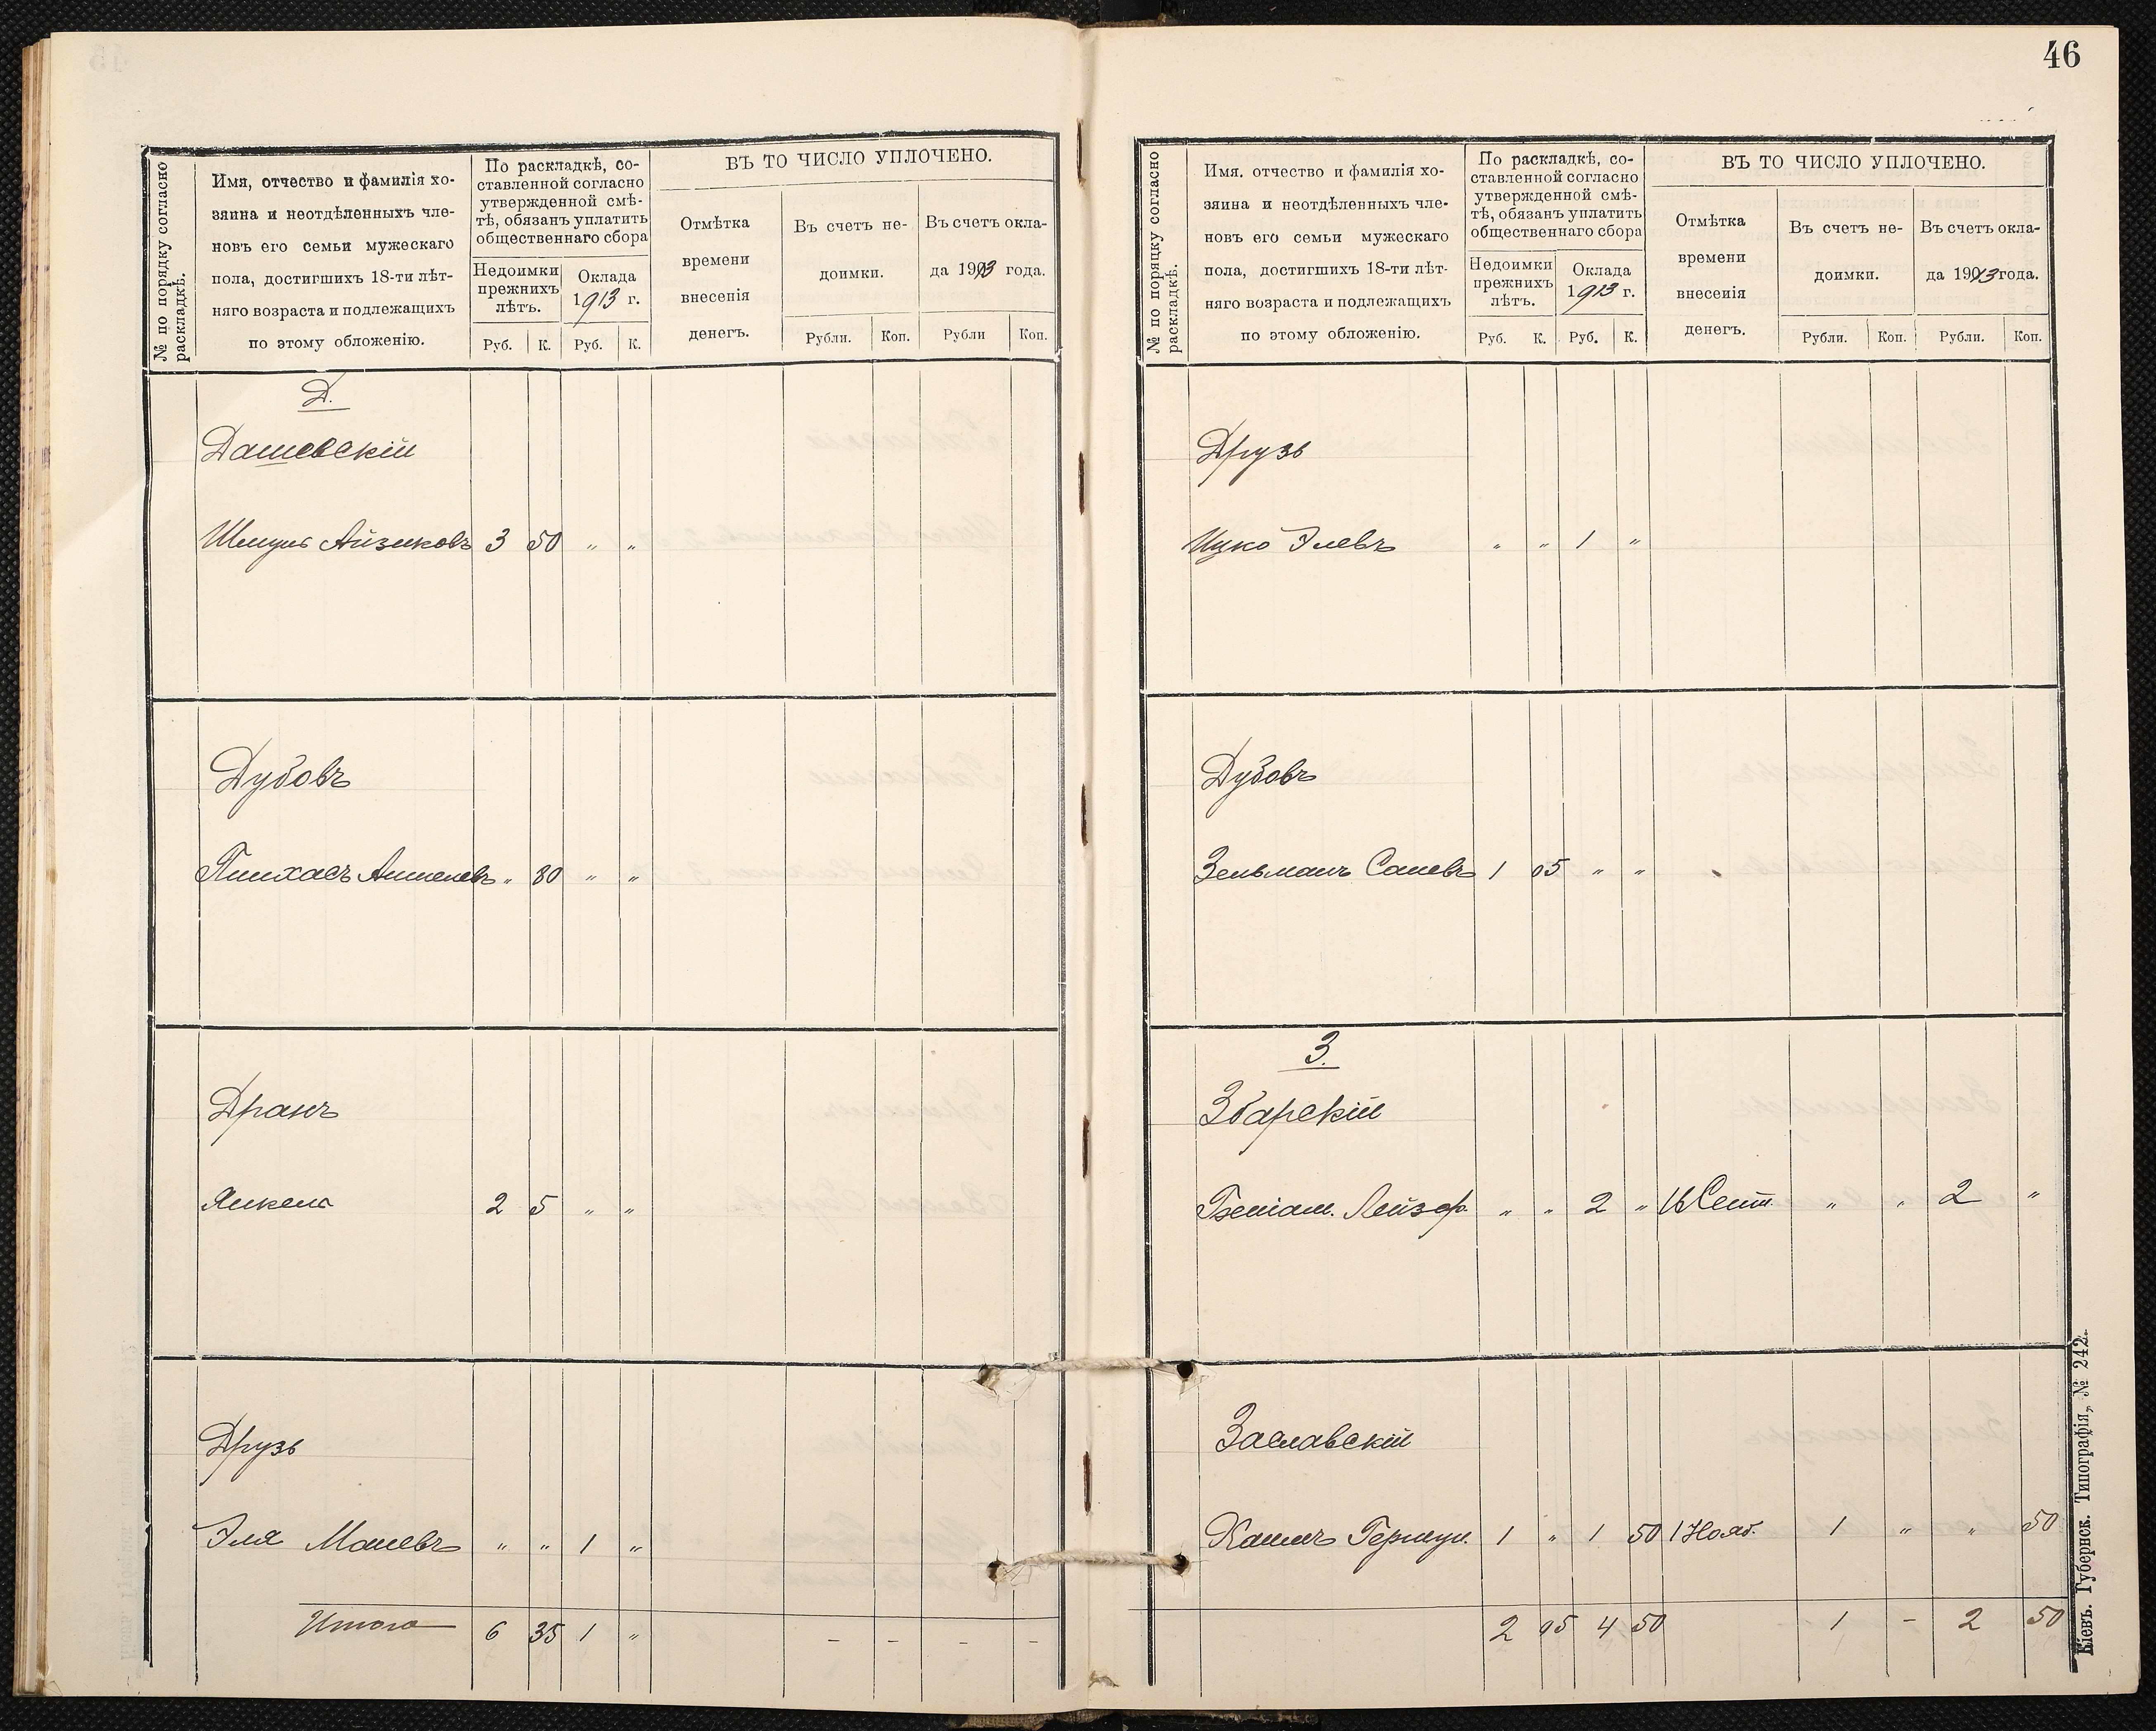 46
№ по порядку согласно
раскладкѣ.
Имя, отчество и фамилія хо-
зяина и неотдѣленныхъ чле-
новъ его семьи мужескаго
пола, достигшихъ 18-ти лѣт-
няго возраста и подлежащихъ
по этому обложенію.
По раскладкѣ, со-
ставленной согласно
утвержденной смѣ-
тѣ, обязанъ уплатить
общественнаго сбора
Недоимки
прежнихъ
лѣтъ.
Оклада
1913 г.
Руб. К. Руб. К.
ВЪ ТО ЧИСЛО УПЛОЧЕНО.
Отмѣтка
времени
внесенія
денегъ.
Въ счетъ не-
доимки.
Въ счетъ окла-
да 1913 года.
Рубли. Коп. Рубли Коп.
Д.
Дашевскій
Шмуль Айзиковъ 3 50 " "
Дубовъ
Пинхасъ Аншелевъ " 80 " "
Дранъ
Янкель 2 5 " "
Друзь
Эля Мошевъ " " 1 "
Итого 6 35 1 " – – – –
№ по поряцку согласно
раскладкѣ.
Имя. отчество и фамилія хо-
зяина и неотдѣленныхъ чле-
новъ его семьи мужескаго
пола, достигшихъ 18-ти лѣт-
няго возраста и подлежащихъ
по этому обложенію.
По раскладкѣ, со-
ставленной согласно
утвержденной смѣ-
тѣ, обязанъ уплатить
общественнаго сбора
Недоимки
прежнихъ
лѣтъ.
Оклада
1913 г.
Руб. К. Руб. К.
ВЪ ТО ЧИСЛО УПЛОЧЕНО.
Отмѣтка
времени
внесенія
денегъ.
Въ счетъ не-
доимки.
Въ счетъ окла-
да 1913 года.
Рубли. Коп. Рубли. Коп.
Друзь
Ицко Элевъ " " 1 "
Дубовъ
Зельманъ 1 05 " "
З.
Збарскій
Беніам. Лейзер. " " 2 " 16 Сент. " " 2 "
Заславскій
Гершун. 1 " 1 50 1 Нояб. 1 " " 50
2 05 4 50 1 – 2 50
Кіевъ. Губернск. Типографія, № 242.